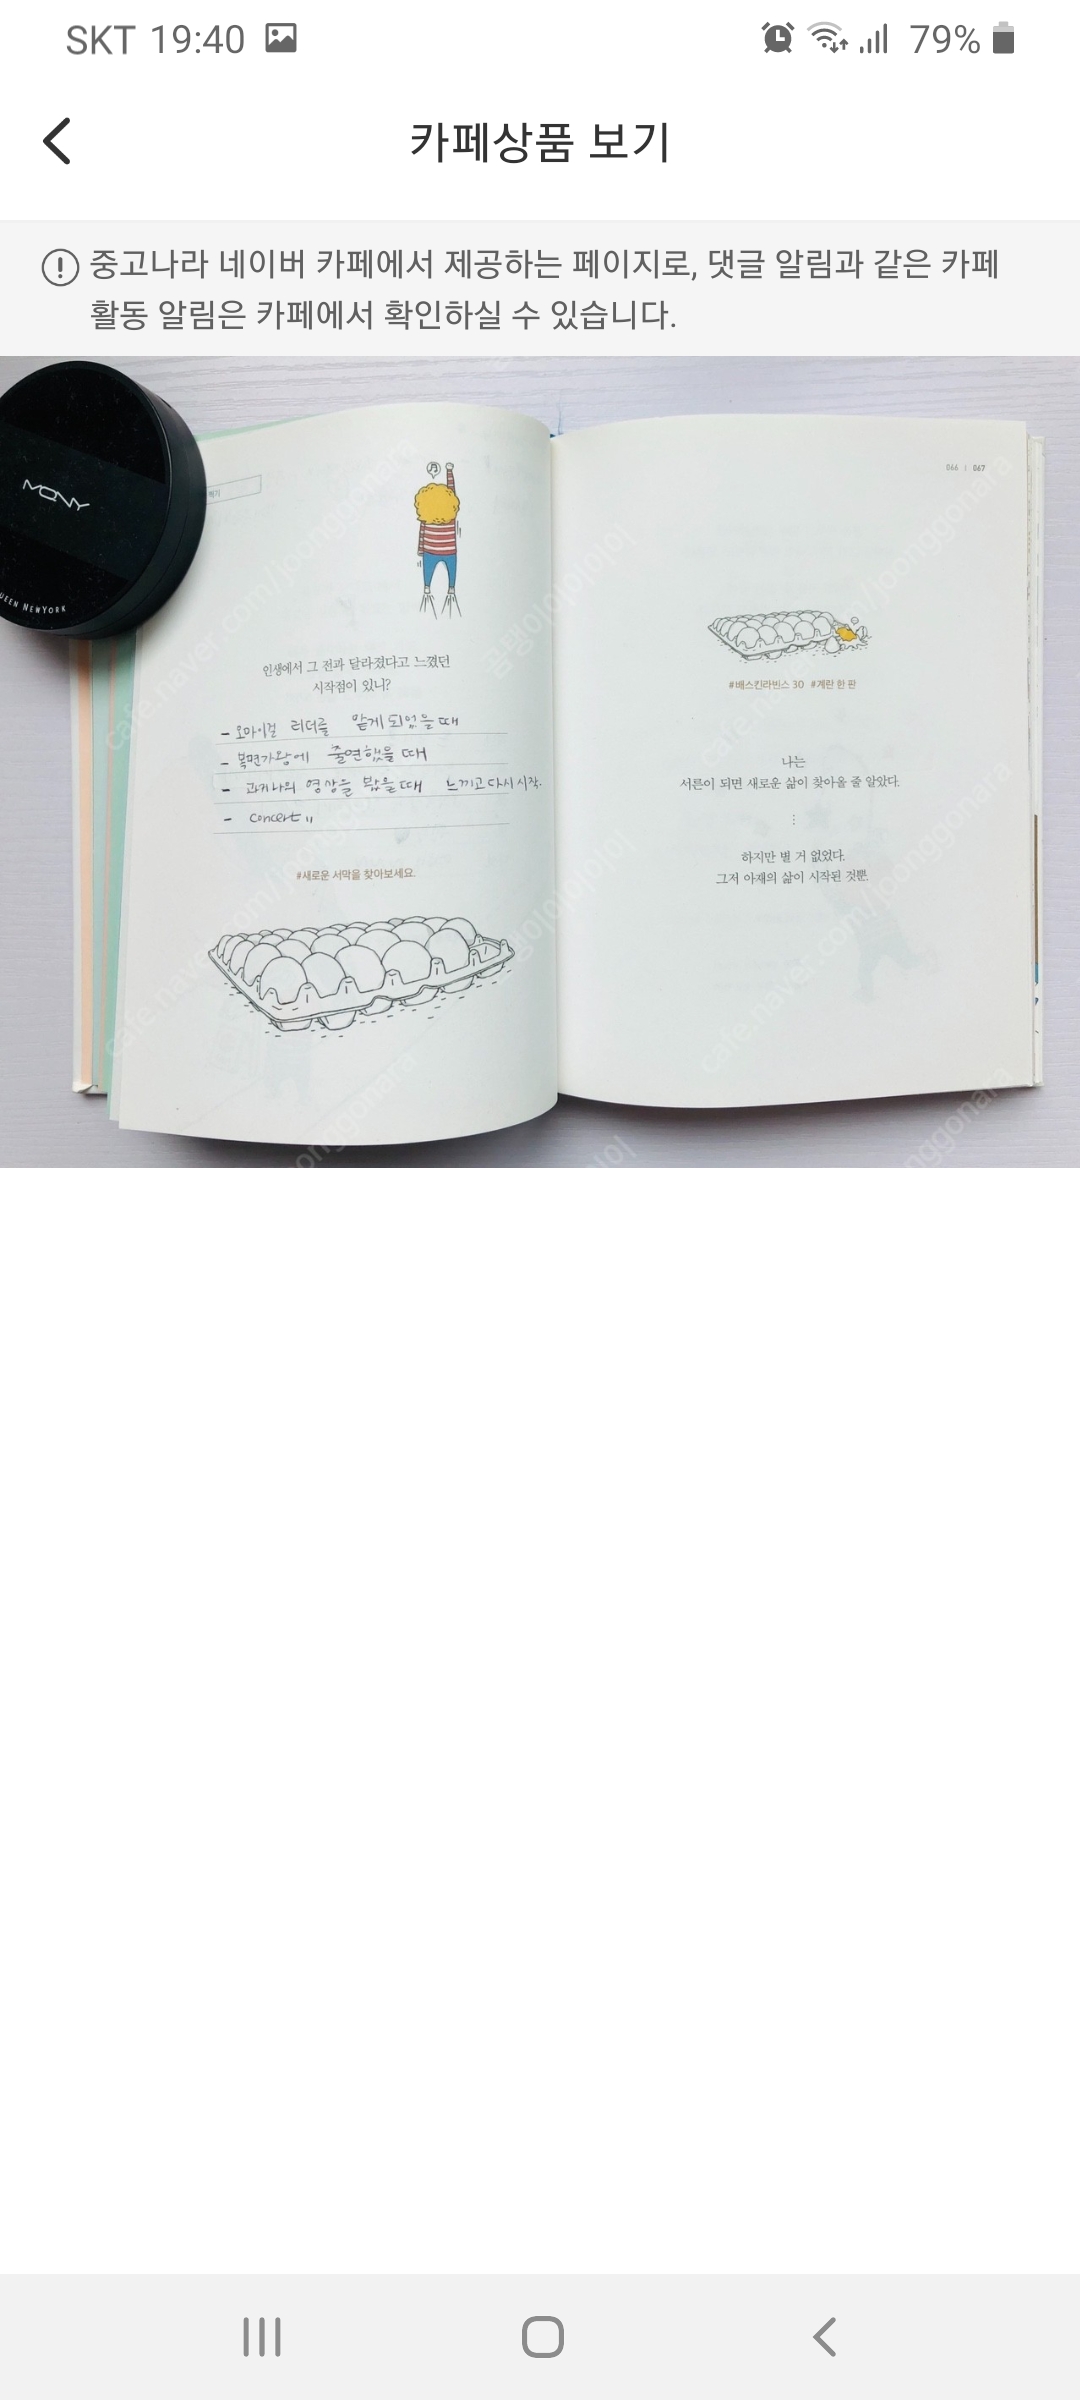 SKT 19:40 79%
카페상품 보기
중고나라 네이버 카페에서 제공하는 페이지로, 댓글 알림과 같은 카페
활동 알림은 카페에서 확인하실 수 있습니다.
MQNY
UEEN NEWYORK
인생에서 그 전과 달라졌다고 느꼈던
시작점이 있니?
- 오마이걸 리더를 맡게 되었을 때
- 복면가왕에 출연했을 때
- 과거 나의 영상을 봤을 때 느끼고 다시 시작.
- concert "
#새로운 서막을 찾아보세요.
066 | 067
#배스킨라빈스 30 #계란 한 판
나는
서른이 되면 새로운 삶이 찾아올 줄 알았다.
⋮
하지만 별 거 없었다.
그저 아재의 삶이 시작된 것뿐.
cafe.naver.com/joonggonara